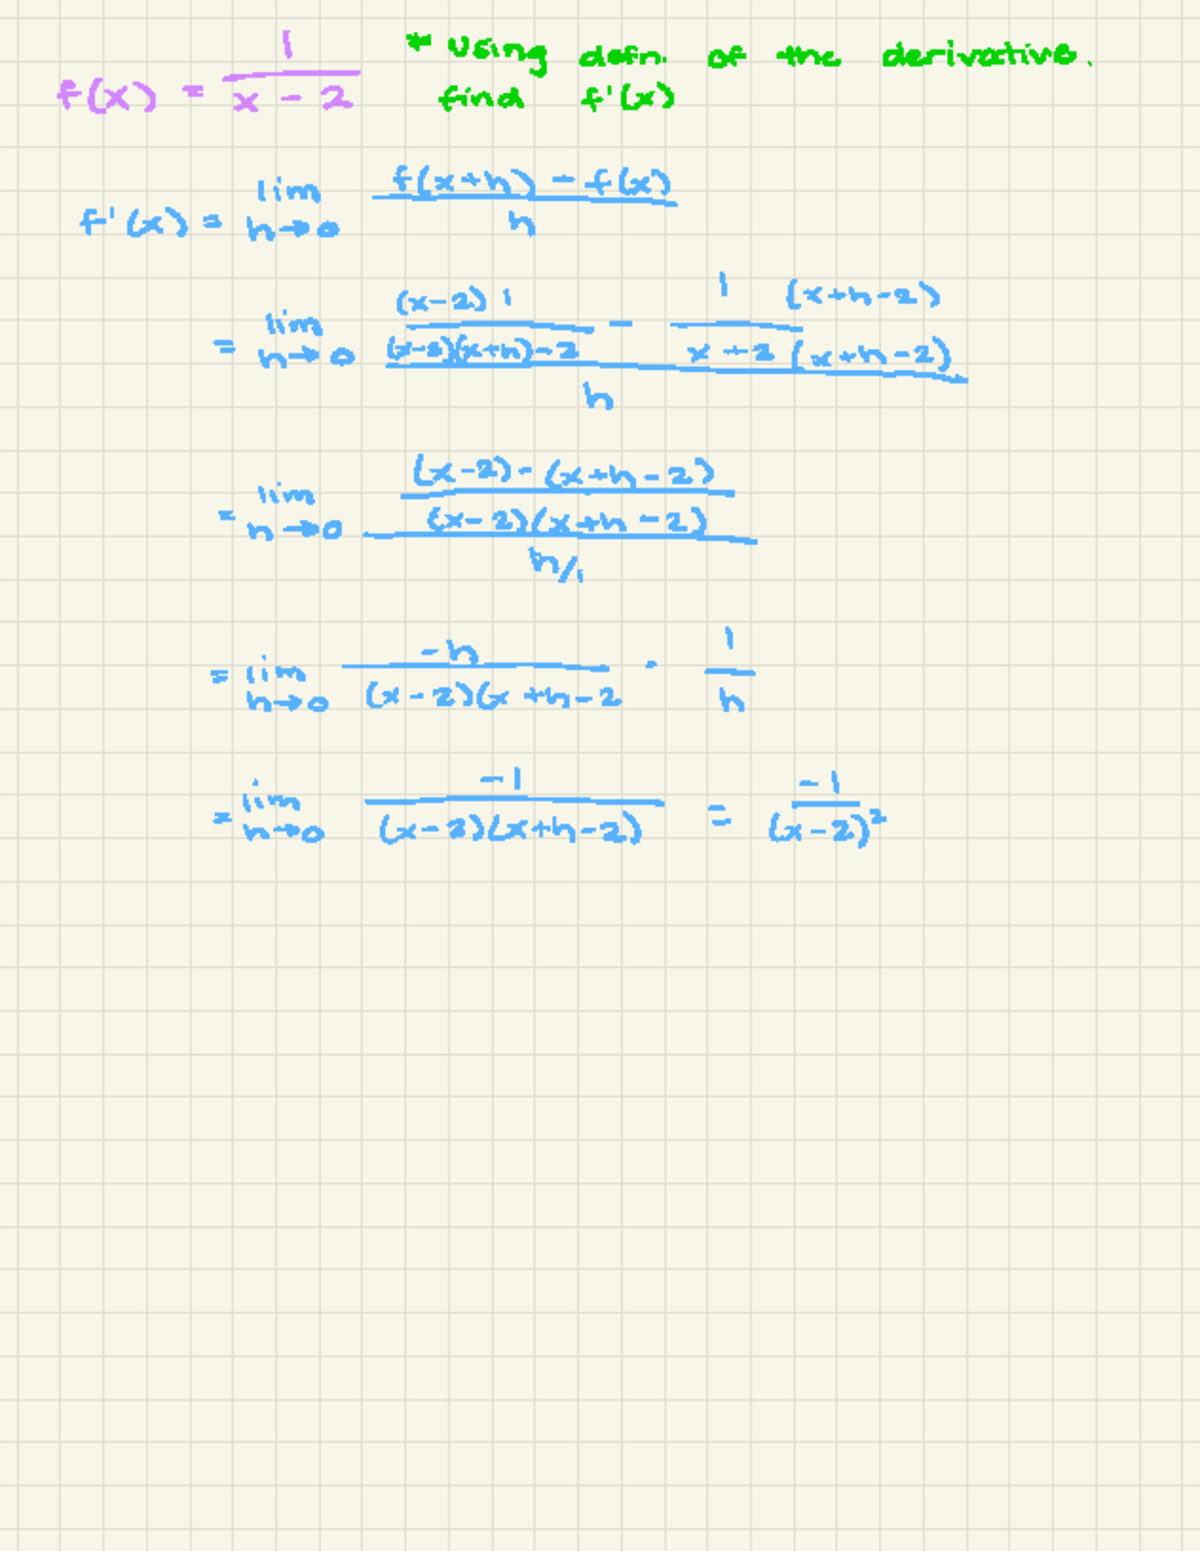 f(x) = 1/(x - 2) * Using defn. of the derivative.
find f'(x)
f'(x) = lim h→0 (f(x+h) - f(x))/h
= lim h→0 ((x-2) 1/((x-2)(x+h)-2) - 1 (x+h-2)/(x+2 (x+h-2)))/h
= lim h→0 (((x-2)-(x+h-2))/((x-2)(x+h-2)))/(h/1)
= lim h→0 -h/((x-2)(x+h-2) · 1/h
= lim h→0 -1/((x-2)(x+h-2)) = -1/(x-2)²